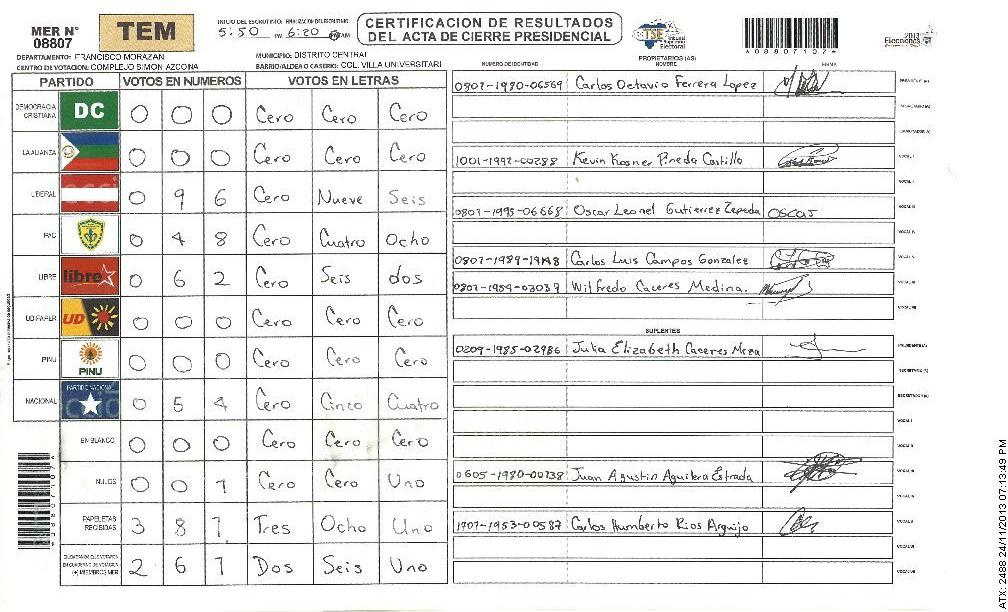 MER N° 08807
TEM
INICIO DEL ESCRUTINIO: FINALIZACION DEL ESCRUTINIO:
5:50 PM 6:20 AM
CERTIFICACION DE RESULTADOS
DEL ACTA DE CIERRE PRESIDENCIAL
TSE Tribunal Supremo Electoral
A08807107+
2013
Elecciones
DEPARTAMENTO: FRANCISCO MORAZAN
MUNICIPIO: DISTRITO CENTRAL
CENTRO DE VOTACION: COMPLEJO SIMON AZCONA
BARRIO/ALDEA O CASERIO: COL. VILLA UNIVERSITARI
PARTIDO VOTOS EN NUMEROS VOTOS EN LETRAS
DEMOCRACIA CRISTIANA DC 0 0 0 Cero Cero Cero
LA ALIANZA 0 0 0 Cero Cero Cero
LIBERAL 0 9 6 Cero Nueve Seis
PAC 0 4 8 Cero Cuatro Ocho
LIBRE libre 0 6 2 Cero Seis dos
UD-FAPER UD 0 0 0 Cero Cero Cero
PINU PINU 0 0 0 Cero Cero Cero
NACIONAL PARTIDO NACIONAL 0 5 4 Cero Cinco Cuatro
EN BLANCO 0 0 0 Cero Cero Cero
NULOS 0 0 1 Cero Cero Uno
PAPELETAS RECIBIDAS 3 8 1 Tres Ocho Uno
CIUDADANOS QUE VOTARON EN CUADERNO DE VOTACION (+) MIEMBROS MER 2 6 1 Dos Seis Uno
NUMERO DE IDENTIDAD PROPIETARIOS (AS) NOMBRE FIRMA
0801-1980-06569 Carlos Octavio Ferrera Lopez PRESIDENTE (A)
SECRETARIO (A)
ESCRUTADOR (A)
1001-1992-00288 Kevin Kosner Pineda Castillo VOCAL I
VOCAL II
0801-1995-06668 Oscar Leonel Gutierrez Zepeda OSCAS VOCAL III
VOCAL IV
0801-1989-19148 Carlos Luis Campos Gonzalez VOCAL V
0801-1959-03039 Wilfredo Caceres Medina. VOCAL VI
VOCAL VII
SUPLENTES
0209-1985-02986 Julia Elizabeth Caceres Meza PRESIDENTE (A)
SECRETARIO (A)
ESCRUTADOR (A)
VOCAL I
VOCAL II
0605-1980-00738 Juan Agustin Aguilera Estrada VOCAL III
VOCAL IV
1707-1953-00587 Carlos Humberto Rios Argujo VOCAL V
VOCAL VI
VOCAL VII
ATX: 2488 24/11/2013 07:13:49 PM